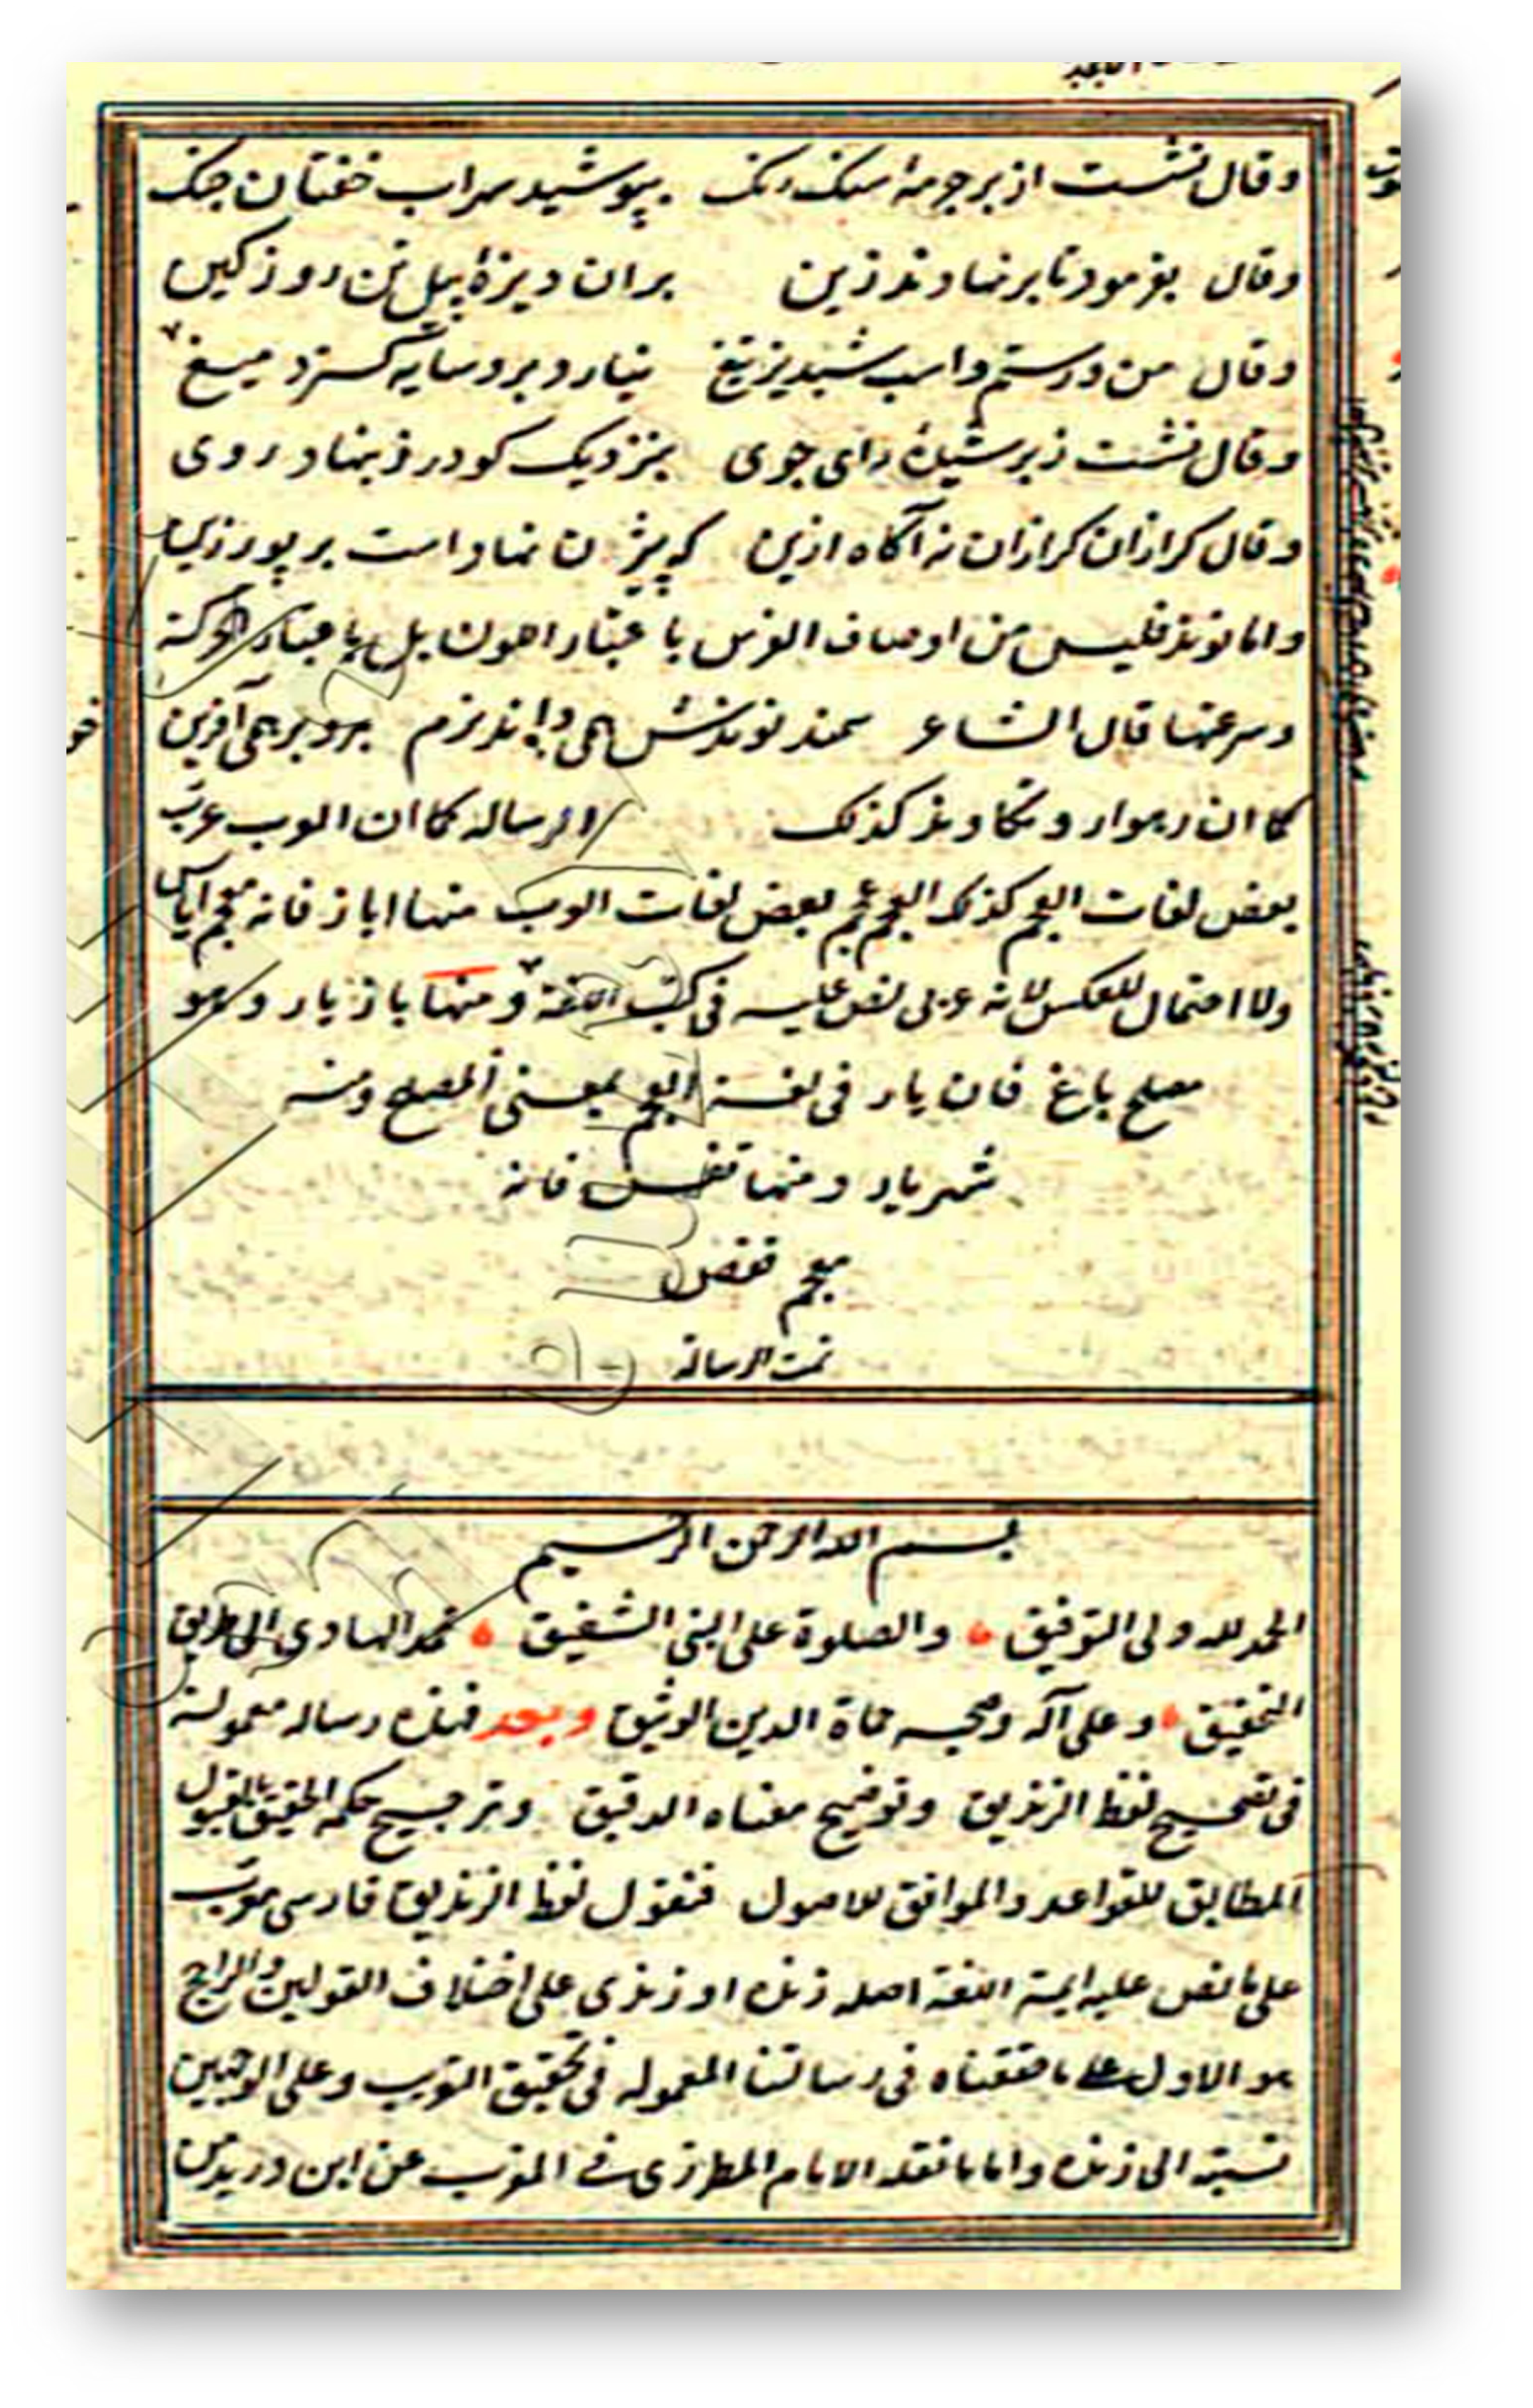 وقال نشست از بر جرمهٔ سنک رنک بپوشید سهراب خفتان جنک
وقال بفرمود تا بر نهادند زین بران دیزهٔ پیل تن روز کین
وقال من ورستم واسب شبدیز وتیغ نیارد برو سایه کسترد میغ
وقال نشست زبر شیدهٔ رای جوی بنزدیک کودرز بنهاد روی
وقال کرازان کرازان نه آکاه ازین که بیژن نهاد است بر بور زین
واما نوند فلیس من اوصاف الفرس باعتبار اللون بل باعتبار الحرکة
وسرعتها قال الشاعر سمند نوندش همی برو بر همی آفرین
کما ان رهوار وتکاوند کذلک الرساله کما ان العرب عرب
بعض لغات العجم کذلک العجم عجم بعض لغات العرب منها اباز فانه معجم ایاس
ولا احتمال للعکس لانه عربی نص علیه فی کتب اللغة ومنها بازیار وهو
مصلح باغ فان یار فی لغة العجم بمعنی المصلح ومنه
شهریار ومنها قفس فانه
معجم قفص
تمت الرسالة
بسم الله الرحمن الرحیم
الحمد لله ولی التوفیق والصلوة علی النبی الشفیق محمد الهادی الی طریق
التحقیق وعلی آله وصحبه حماة الدین الوثیق وبعد فهذه رساله معمولة
فی تصحیح لفظ الزندیق وتوضیح معناه الدقیق وترجیح حکمه الحقیق بالقبول
المطابق للقواعد والموافق للاصول فنقول لفظ الزندیق فارسی معرب
علی ما نص علیه ایمة اللغة اصله زنده او زندی علی اختلاف القولین والراجح
هو الاول علی ما حققناه فی رسالتنا المعموله فی تحقیق التعریب وعلی الوجهین
نسبته الی زنده واما ما نقله الامام المطرزی فی المغرب عن ابن درید من